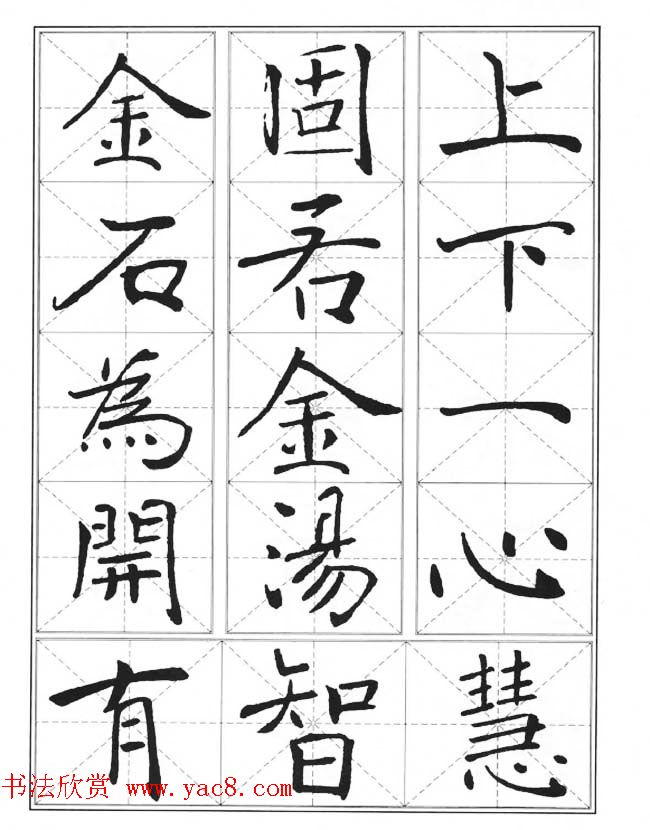 上下一心
固若金湯
金石為開
有智慧
书法欣赏 www.yac8.com